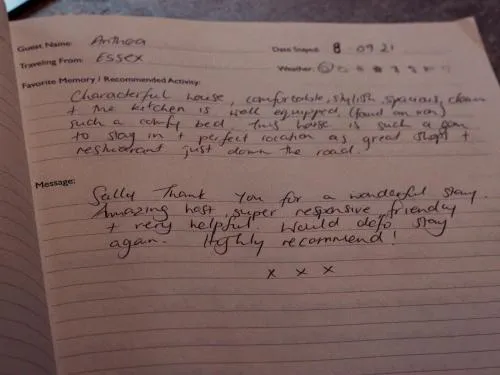 Guest Name: Anthea
Date Stayed: 8 09 21
Traveling From: Essex
Weather:
Favorite Memory / Recommended Activity:
Characterful house, comfortable, stylish, spacious, clean
+ the kitchen is well equipped (found an iron)
such a comfy bed This house is such a gem
to stay in + perfect location as great shops +
restaurant just down the road.
Message:
Sally Thank you for a wonderful stay.
Amazing host, super responsive, friendly
+ very helpful. Would defo stay
again. Highly recommend!
x x x